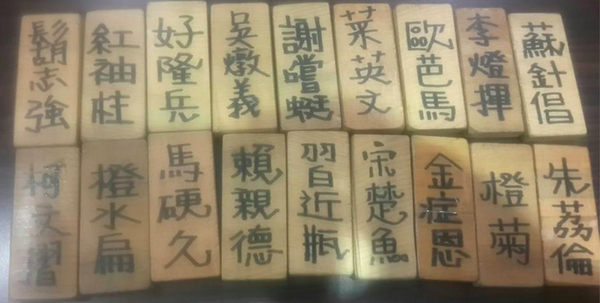 鬍志強
紅袖柱
好隆兵
吳燉義
謝嚐蜓
菜英文
歐芭馬
李燈揮
蘇針倡
柯文
橙水扁
馬硬久
賴親德
習近瓶
宋楚魚
金症恩
橙菊
朱荔倫